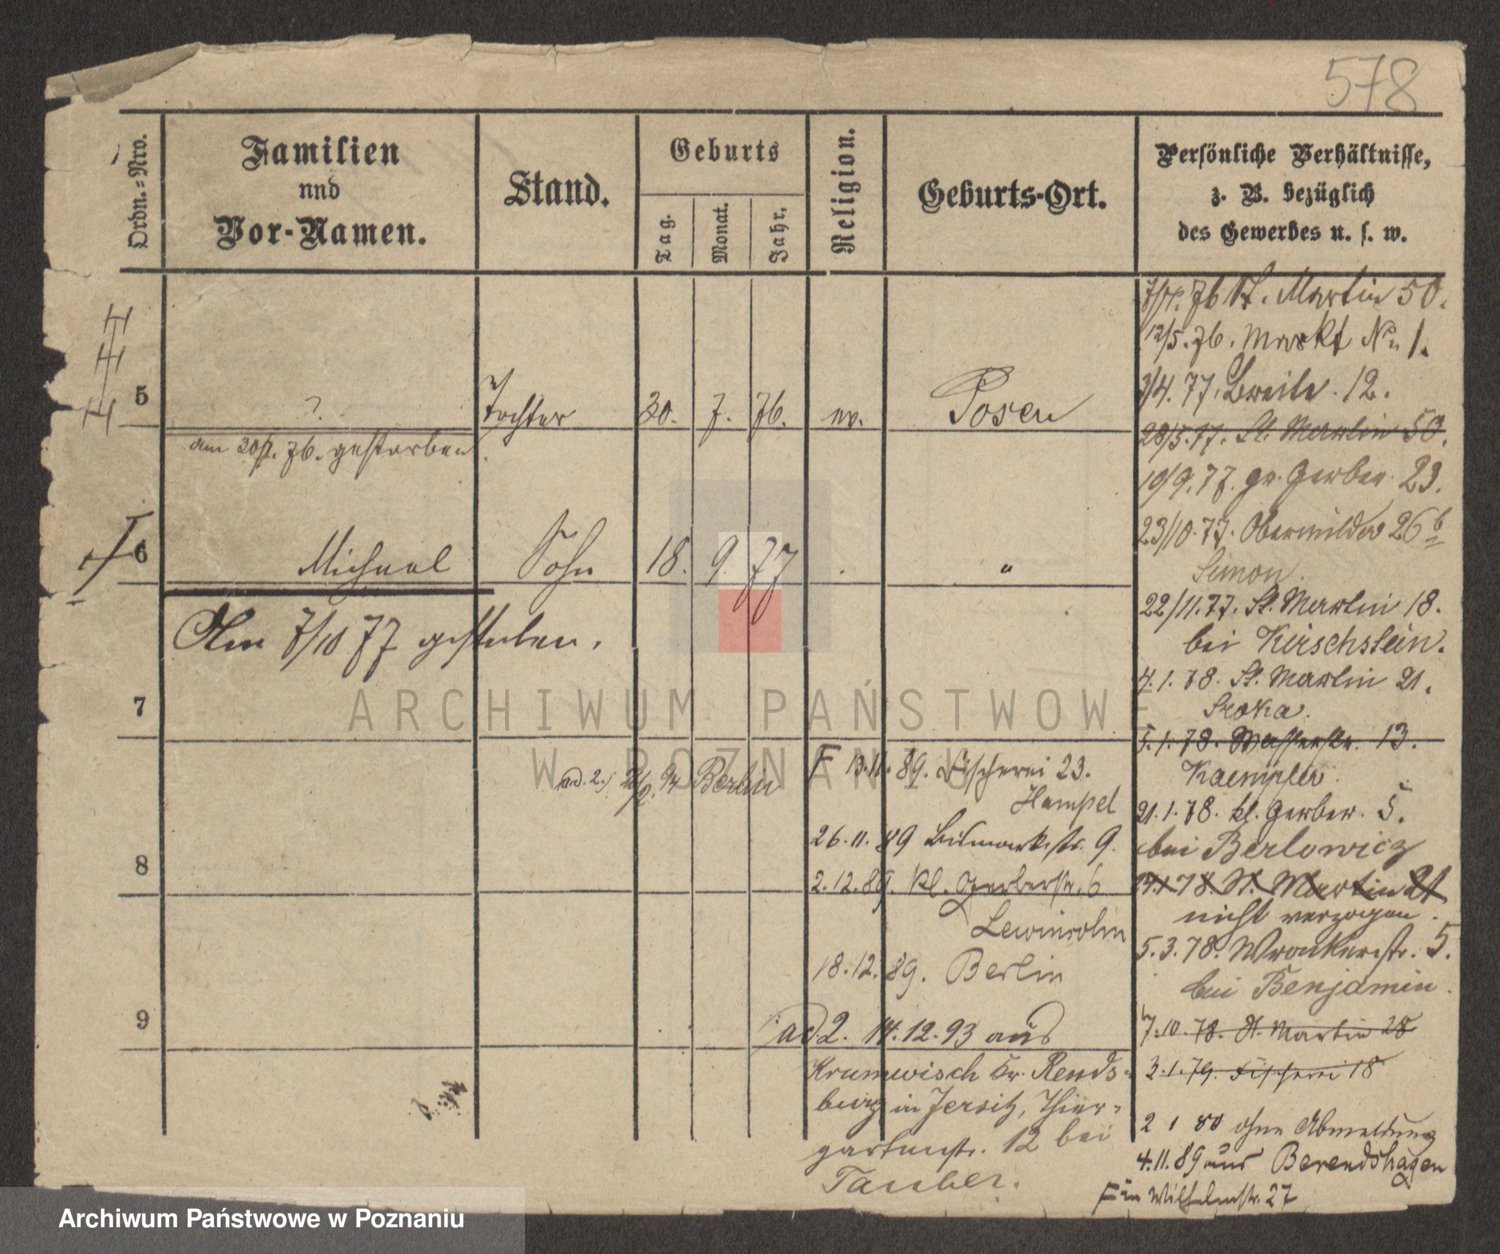 578
Ordn.=Nro.
Familien
nnd
Vor-Namen.
Stand.
Geburts
Tag.
Monat.
Jahr.
Religion.
Geburts-Ort.
Persönliche Verhältnisse,
z. B. bezüglich
des Gewerbes u. s. w.
5 ? Tochter 30. 7. 76. ev. Posen
am gestorben.
6 Michael Sohn 18. 9. 77 . "
Am 7/10 77 gestorben.
7
8
9
76 St. Martin 50.
12/5. 76. Markt No 1.
3/4. 77. Breite. 12.
28/5. 77. St. Martin 50.
19/9. 77. gr. Gerber. 23.
23/10. 77. Obermilde 26 b
Simon.
22/11. 77. St. Martin 18.
bei Kirschstein.
4. 1. 78. St. Martin 21.
Sroka.
5. 1. 78. Wasserstr. 13.
Kaempfer.
21. 1. 78. kl. Gerber. 5.
bei Berlowicz
78 St. Martin 21
nicht verzogen.
5. 3. 78. Wronkerstr. 5.
bei Benjamin.
7. 10. 78. St. Martin 28
3. 1. 79. Fischerei 18
2 1 80 ohne Abmeldung
4. 11. 89 aus Berendshagen
in Wilhelmstr. 27
ad. 2.) 94 Berlin
F 13. 11. 89. Fischerei 23.
Hampel
26. 11. 89 Bismarckstr. 9.
2. 12. 89. kl. Gerberstr. 6
Lewinsohn
18. 12. 89. Berlin
ad 2. 14. 12. 93 aus
Krummwisch Kr. Rends-
burg in Jersitz, Thier-
gartenstr. 12 bei
Tauber.
ARCHIWUM PAŃSTWOWE
W POZNANIU
Archiwum Państwowe w Poznaniu